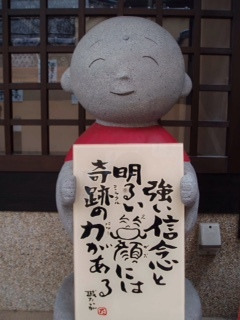 強い信念と
明るい笑顔には
奇跡の力がある